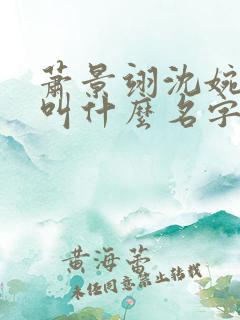 蕭景翊沈婉
叫什麼名字
黄海蕾
未经同意禁止转载